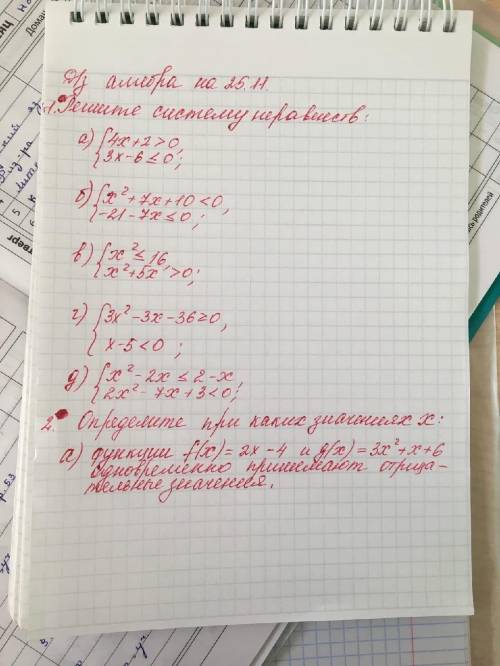 Д/з алгебра на 25.11.
1. Решите систему неравенств:
а) {4x+2>0,
{3x-6≤0;
б) {x²+7x+10<0,
{-21-7x≤0;
в) {x²≤16,
{x²+5x>0;
г) {3x²-3x-36≥0,
{x-5<0;
д) {x²-2x≤2-x
{2x²-7x+3<0;
2. Определите при каких значениях x:
а) функции f(x)=2x-4 и g(x)=3x²+x+6
одновременно принимают отрица-
тельные значения.